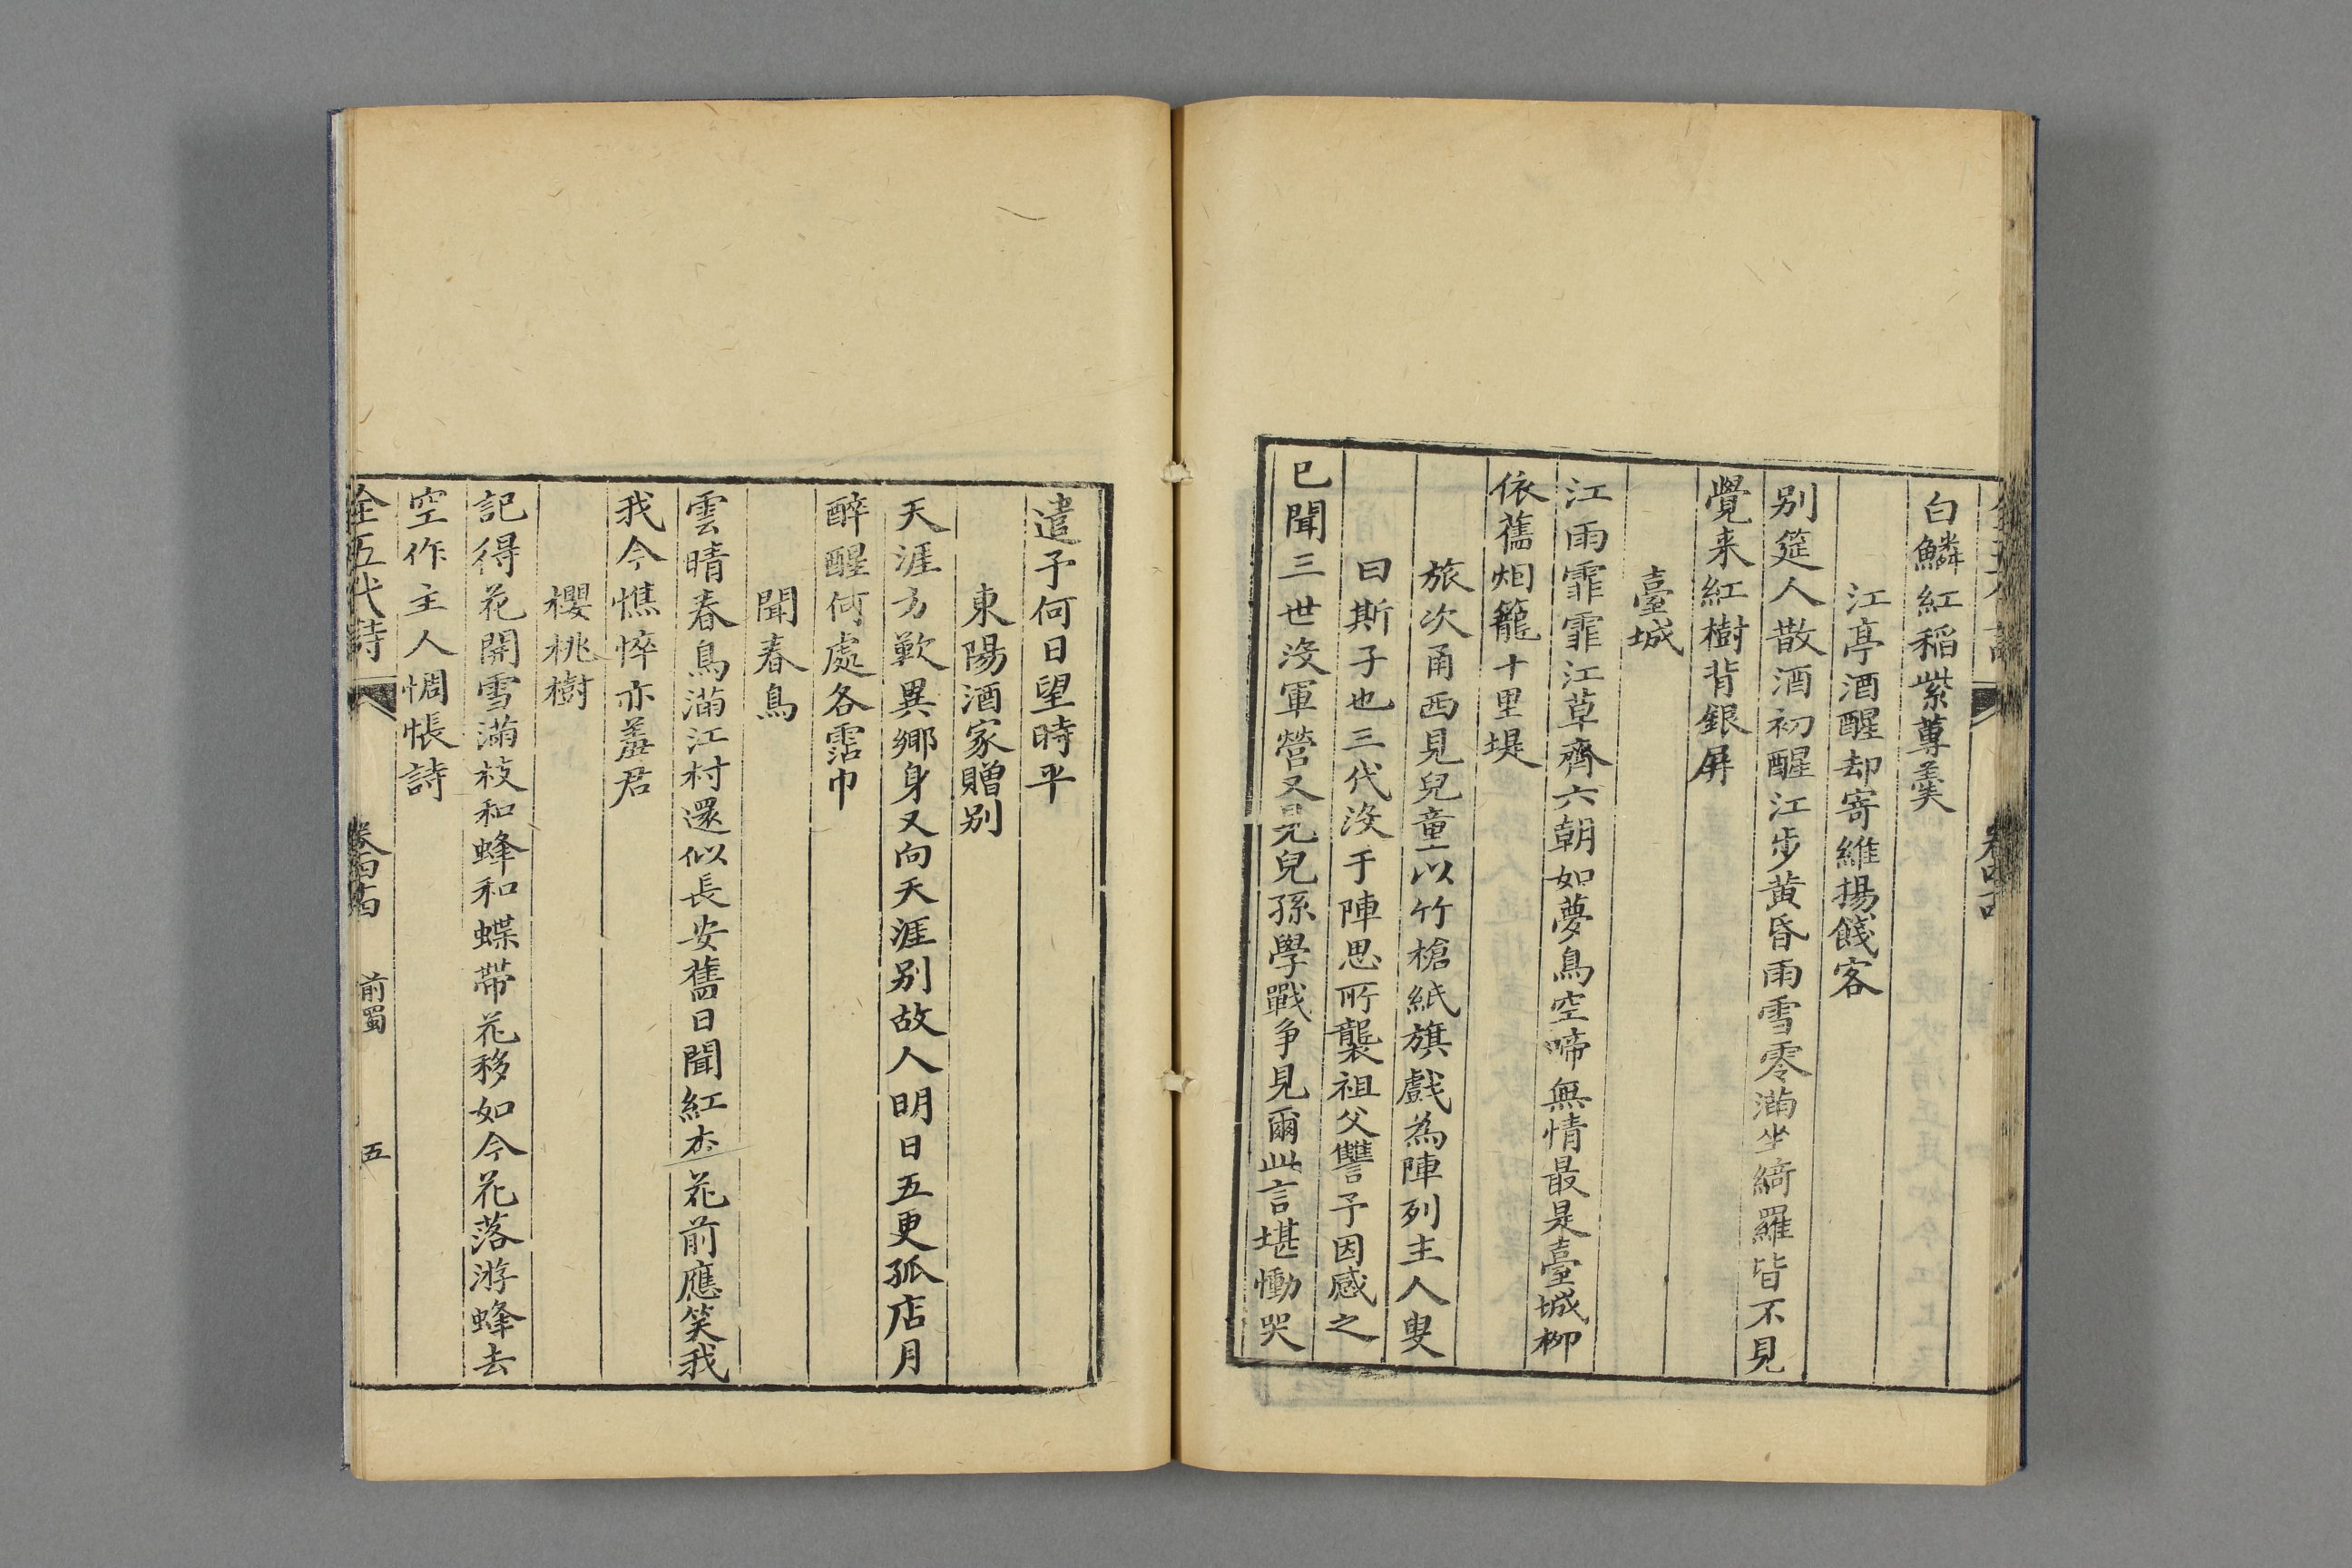 白鱗紅稻紫蓴羹
江亭酒醒却寄維揚餞客
别筵人散酒初醒江步黄昏雨雪零滿坐綺羅皆不見
覺来紅樹背銀屏
臺城
江雨霏霏江草齊六朝如夢鳥空啼無情最是臺城柳
依舊烟籠十里堤
旅次甬西見兒童以竹槍紙旗戲為陣列主人叟
曰斯子也三代沒于陣思所襲祖父讐予因感之
已聞三世沒軍營又見兒孫學戰争見爾此言堪慟哭
遣予何日望時平
東陽酒家贈别
天涯方歎異鄉身又向天涯别故人明日五更孤店月
醉醒何處各霑巾
聞春鳥
雲晴春鳥滿江村還似長安舊日聞紅杏花前應笑我
我今憔悴亦羞君
櫻桃樹
記得花開雪滿枝和蜂和蝶帶花移如今花落游蜂去
空作主人惆悵詩
全五代詩 前蜀 五